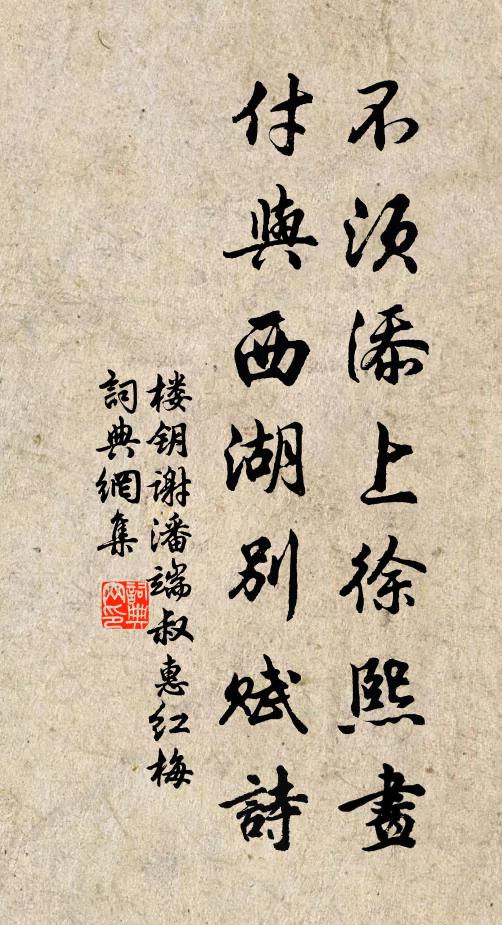 不須添上徐熙畫
付與西湖別賦詩
楼钥謝潘端叔惠红梅
詞典網集
詞典网印